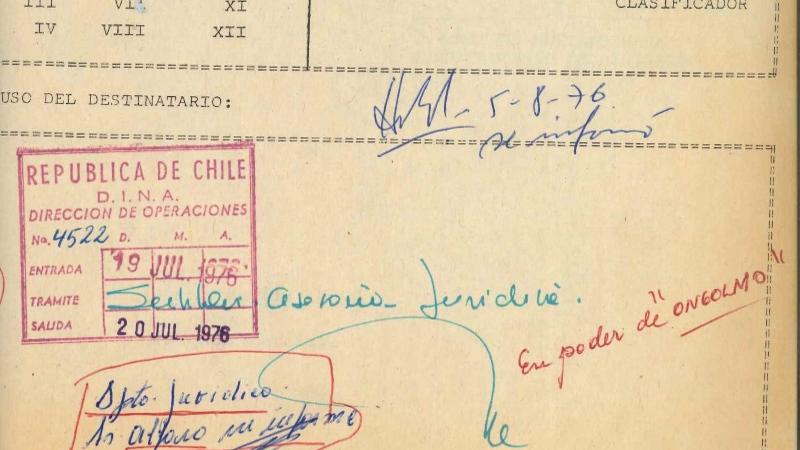 III VII XI
CLASIFICADOR
IV VIII XII
USO DEL DESTINATARIO:
5-8-76
se informó
REPUBLICA DE CHILE
D.I.N.A.
DIRECCION DE OPERACIONES
No. 4522 D. M. A.
ENTRADA 19 JUL. 1976
TRAMITE asesoria Juridica.
SALIDA 20 JUL. 1976
En poder de "ONGOLMO"
Dpto. Juridico.
informe